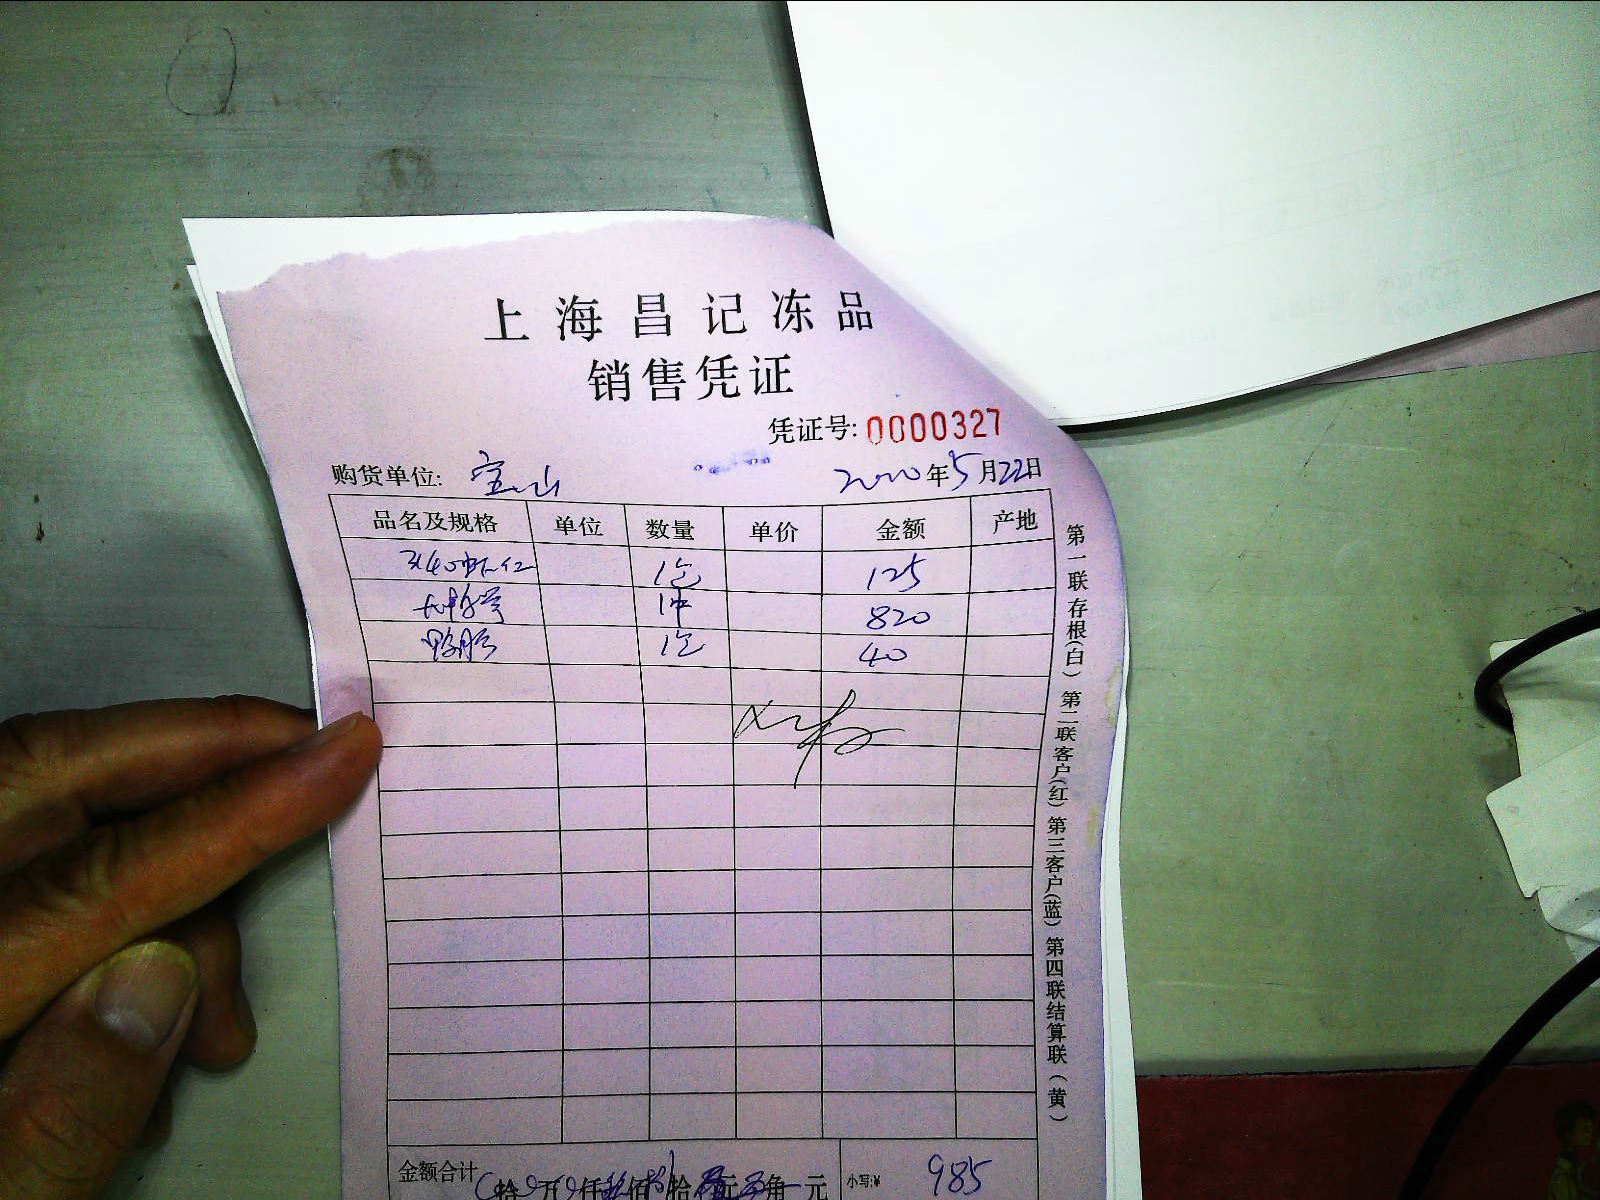 上海昌记冻品
销售凭证
凭证号: 0000327
购货单位: 宝山 2020年5月22日
品名及规格 单位 数量 单价 金额 产地
3140虾仁 1包 125
1件 820
鸭肠 1包 40
金额合计 拾 万 仟 佰 拾 元 角 元 小写:¥ 985
第一联存根(白) 第二联客户(红) 第三客户(蓝) 第四联结算联(黄)